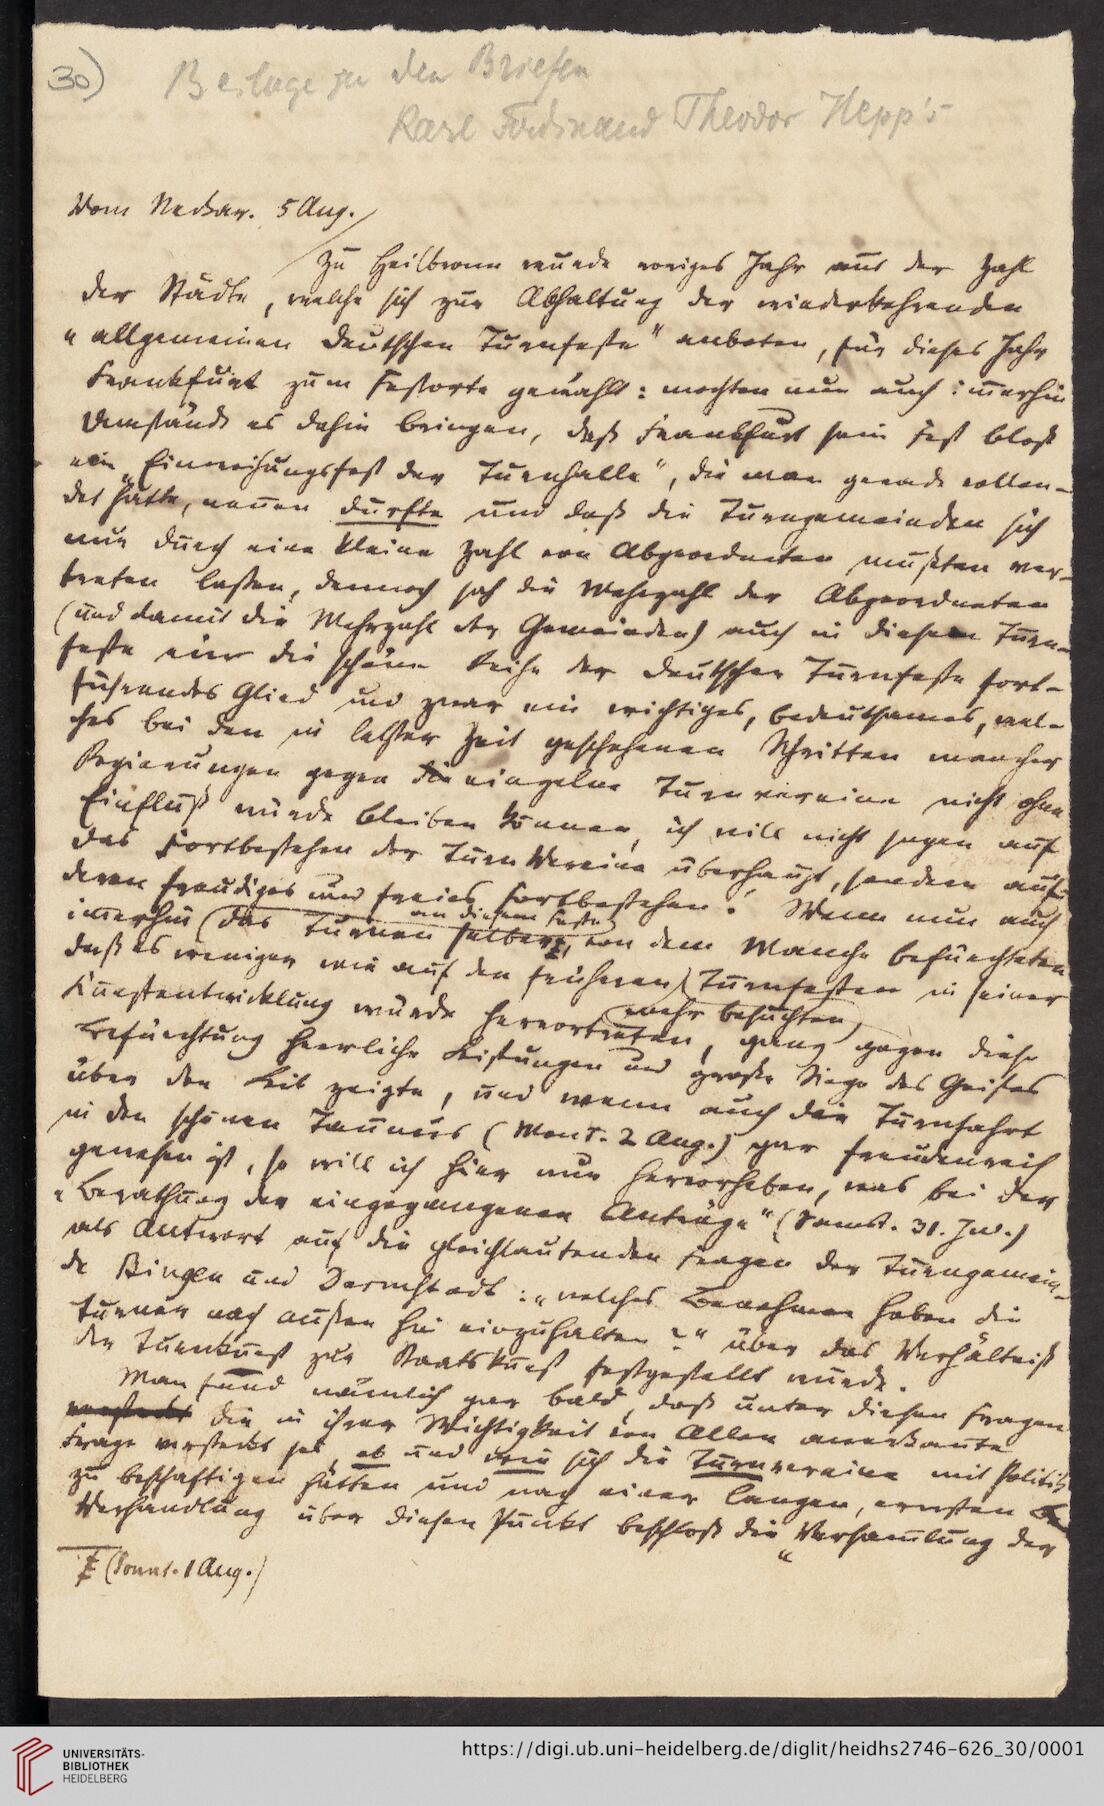 30)
Beilage zu den Briefen
Karl Ferdinand Theodor Hepp's
Vom Neckar. 5 Aug.
Zu Heilbronn wurde voriges Jahr aus der Zahl
der Städte, welche sich zur Abhaltung der wiederkehrenden
„allgemeinen deutschen Turnfeste" anboten, für dieses Jahr
Frankfurt zum Festorte gewählt: mochten nun auch immerhin
Umstände es dahin bringen, daß Frankfurt sein Fest bloß
ein „Einweihungsfest der Turnhalle", die man gerade vollen-
det hatte, nennen durfte und daß die Turngemeinden sich
nur durch eine kleine Zahl von Abgeordneten mußten ver-
treten lassen, dennoch sah die Mehrzahl der Abgeordneten
(und damit die Mehrzahl der Gemeinden) auch in diesem Turn-
feste ein die schöne Reihe der deutschen Turnfeste fort-
führendes Glied und zwar ein wichtiges, bedeutsames, wel-
ches bei den in letzter Zeit geschehenen Schritten mancher
Regierungen gegen die einzelne Turnvereine nicht ohne
Einfluß würde bleiben können, ich will nicht sagen auf
das Fortbestehen der Turnvereine überhaupt, sondern auf
deren freudiges und freies Fortbestehen. Wenn nun auch
immerhin (das Turnen an diesem Feste selber ‡, von dem Manche befürchteten
daß es weniger wie auf den früheren, mehr besuchten Turnfesten in seiner
Kunstentwicklung würde hervortreten, ganz gegen diese
Befürchtung herrliche Leistungen und große Siege des Geistes
über den Leib zeigte, und wenn auch die Turnfahrt
in den schönen Taunus (Mont. 2 Aug.) gar freudenreich
gewesen ist, so will ich hier nur hervorheben, was bei der
„Berathung der eingegangenen Anträge" (Samst. 31. Jul.)
als Antwort auf die gleichlautenden Fragen der Turngemein-
de Bingen und Darmstadt: „welches Benehmen haben die
Turner nach außen hin einzuhalten?" über das Verhältniß
der Turnkunst zur Staatskunst festgestellt wurde.
Man fand nämlich gar bald, daß unter diesen Fragen
versteckt die in ihrer Wichtigkeit von Allen anerkannte
Frage versteckt sei, ob und wie sich die Turnvereine mit Politik
zu beschäftigen hätten und nach einer langen, ernsten
Verhandlung über diesen Punkt beschloß die „Versammlung der
‡ (Sonnt. 1 Aug.)
UNIVERSITÄTS-
BIBLIOTHEK
HEIDELBERG
https://digi.ub.uni-heidelberg.de/diglit/heidhs2746-626_30/0001